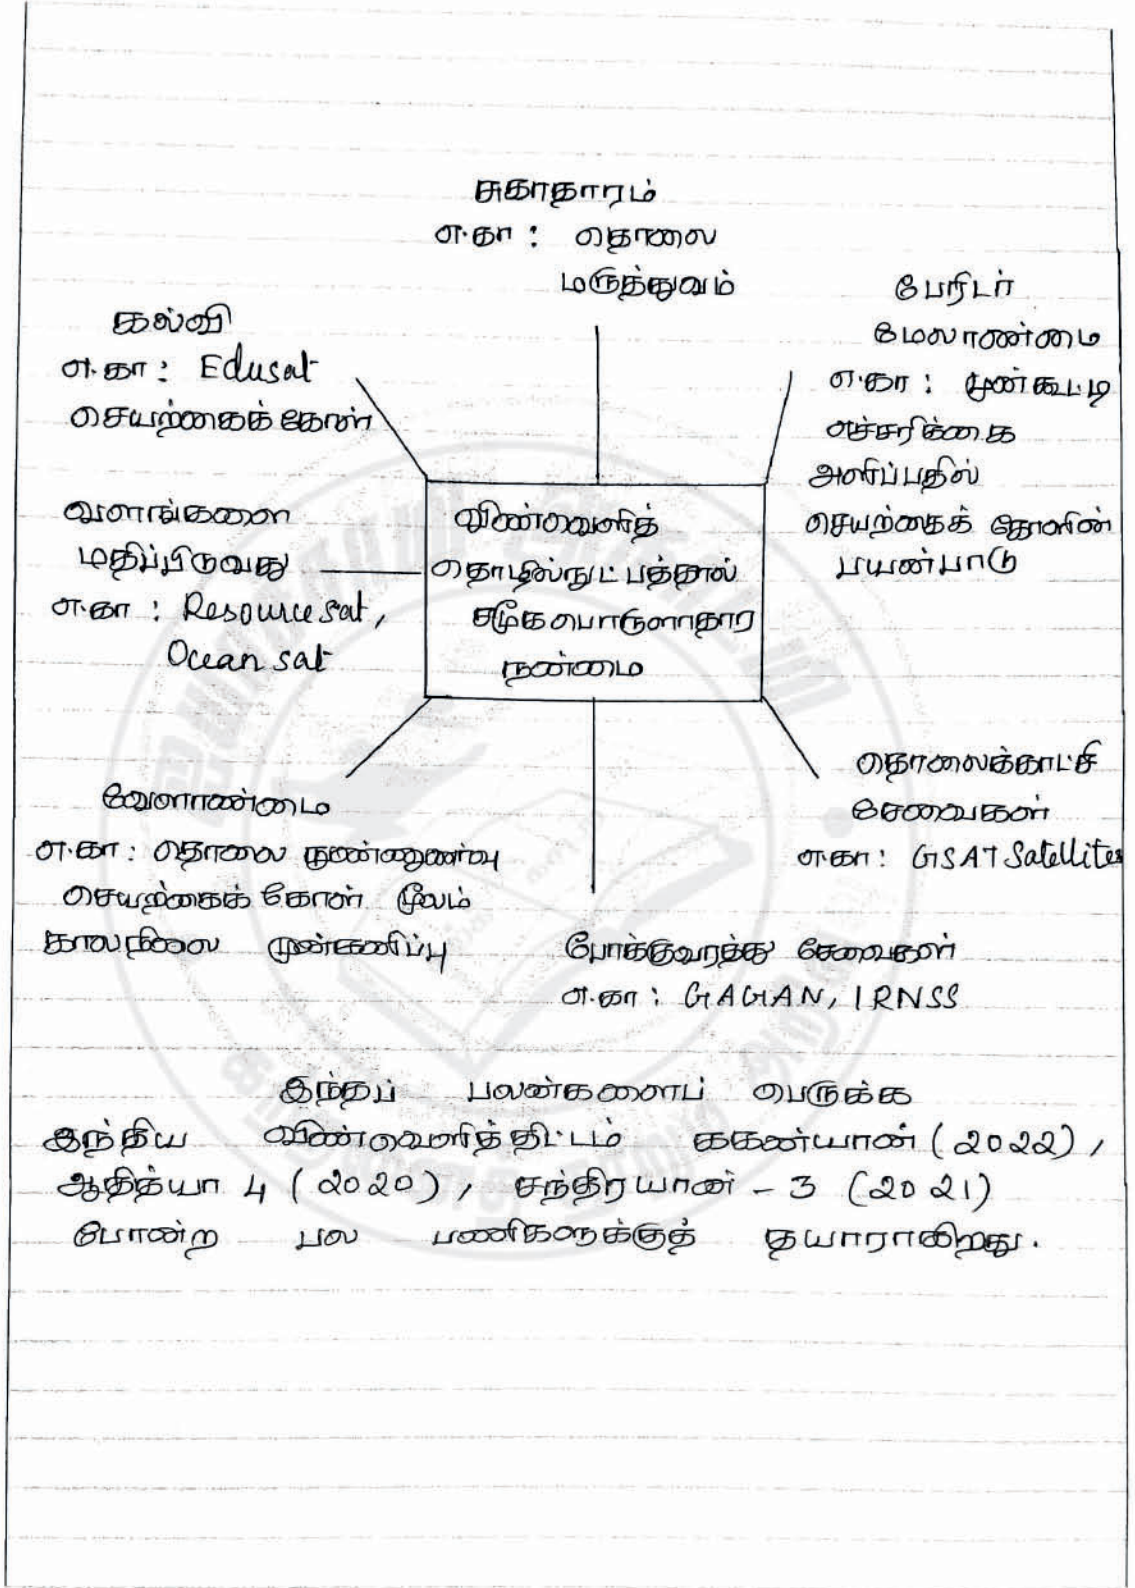 சுகாதாரம்
எ.கா : தொலை
மருத்துவம்
கல்வி
எ.கா : Edusat
செயற்கைக் கோள்
பேரிடர்
மேலாண்மை
எ.கா : முன்கூட்டி
எச்சரிக்கை
அளிப்பதில்
செயற்கைக் கோளின்
பயன்பாடு
வளங்களை
மதிப்பிடுவது
எ.கா : Resourcesat,
Ocean sat
விண்வெளித்
தொழில்நுட்பத்தால்
சமூக பொருளாதார
நன்மை
வேளாண்மை
எ.கா : தொலை நுண்ணுணர்வு
செயற்கைக் கோள் மூலம்
காலநிலை முன்கணிப்பு
தொலைக்காட்சி
சேவைகள்
எ.கா : GSAT Satellites
போக்குவரத்து சேவைகள்
எ.கா : GAGAN, IRNSS
இந்தப் பலன்களைப் பெருக்க
இந்திய விண்வெளித்திட்டம் ககன்யான் (2022),
ஆதித்யா 4 (2020), சந்திரயான் - 3 (2021)
போன்ற பல பணிகளுக்குத் தயாராகிறது.